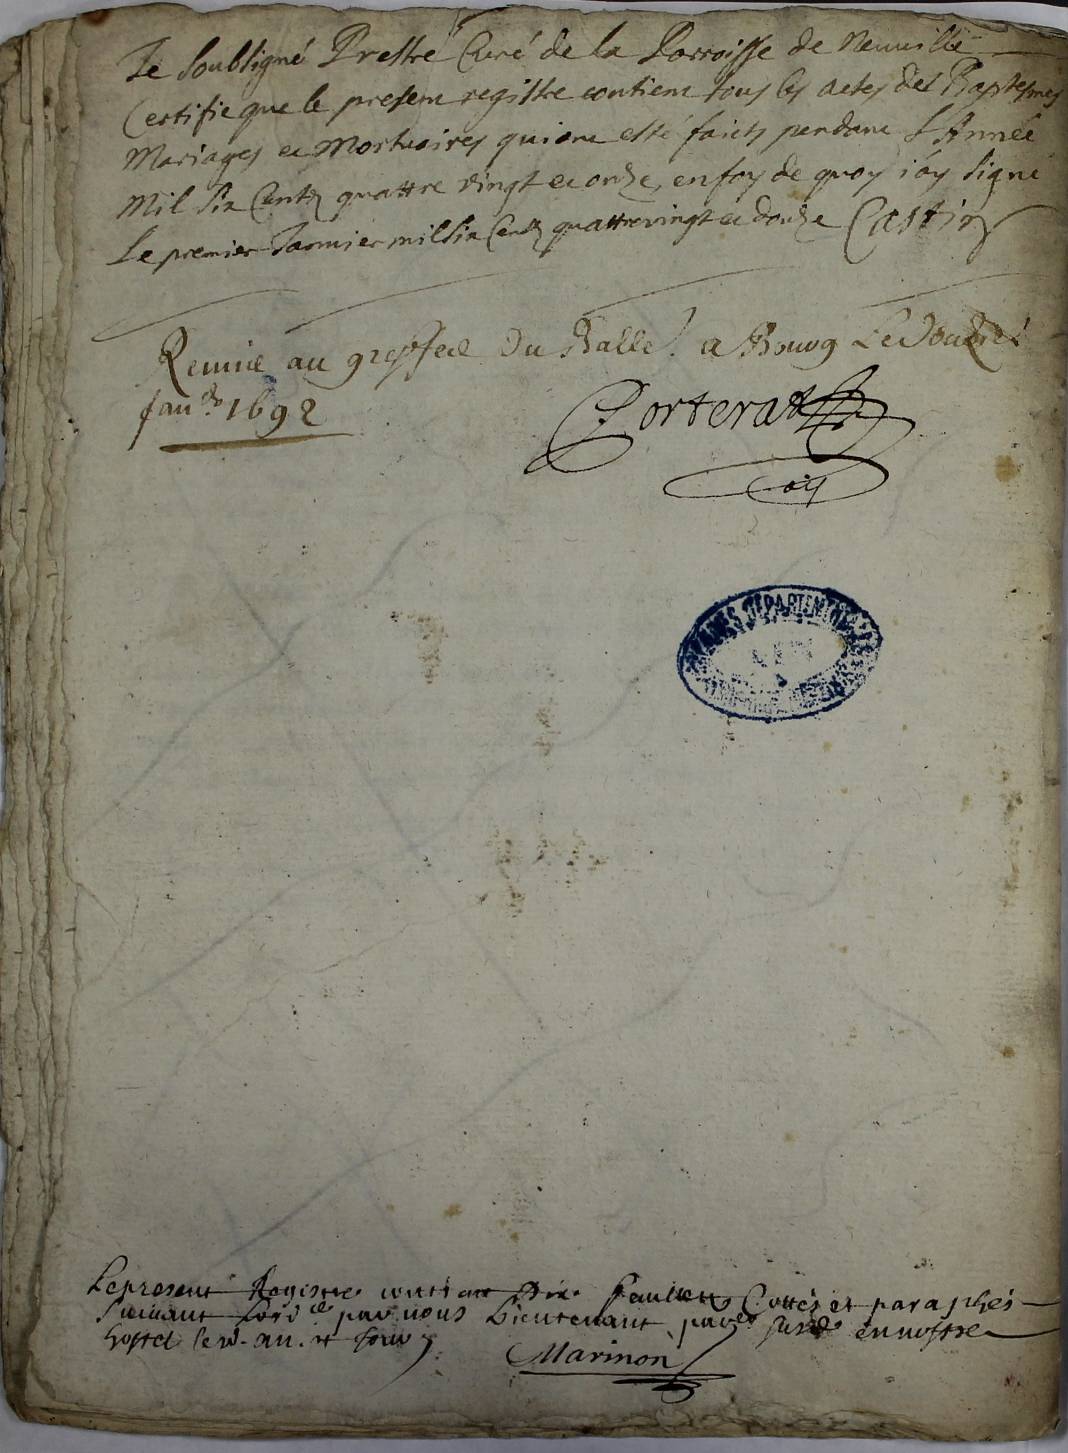 Je Soubsigné Prestre Curé de la Parroisse de Neuville
Certifie que le present registre contient tous les actes des Baptesmes
Mariages et Mortuaires qui ont esté faicts pendant L'Année
Mil Six Cents quattre vingt et onze, en foy de quoy i'ay signé
Le premier Janvier mil Six Cents quattrevingt et douze Castin
Remie au greffe du Balle. a Bourg Le Douzie.
Janv. 1692
Porterat
Le present Registre contenant feuillets Cottés et paraphés
Suivant Lord.ce par nous Lieutenant en nostre
hostel led. an. et Jour
Marinon
ARCHIVES DEPARTEMENTALES